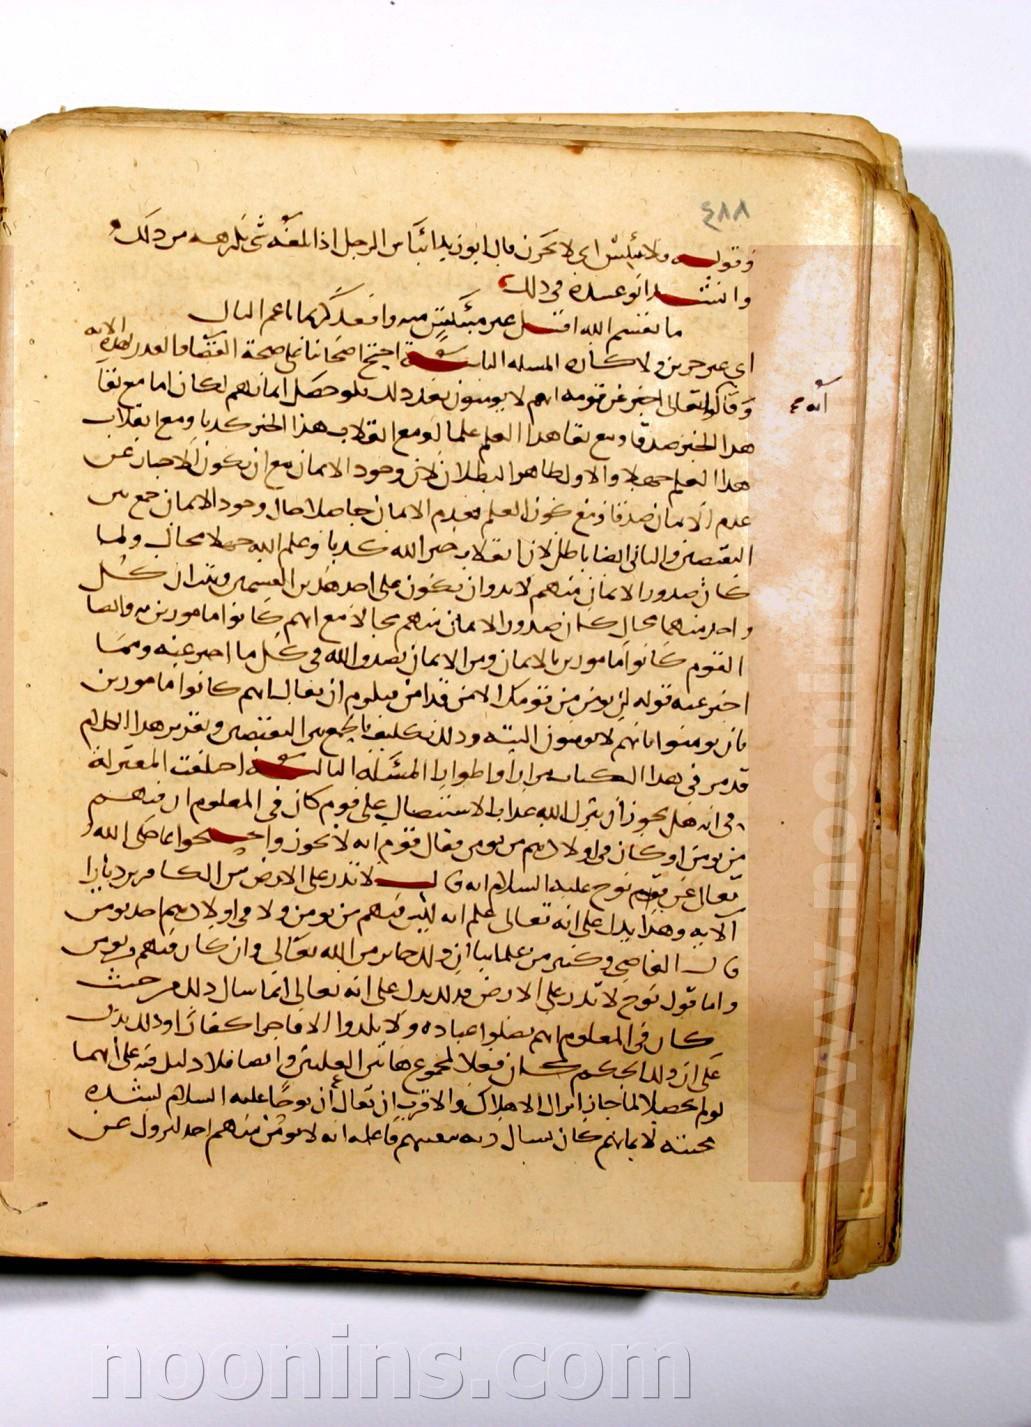 ٤٨٨
وقوله فلا تبتئس اي لا تحزن قال ابو زيد ابتأس الرجل اذا بلغه شي يكرهه من ذلك و
وانشد ابو عبيده في ذلك
ما يقسم الله اقبل غير مبتئس منه واقعد كريما ناعم البال
اي غير حزين ولا كاره المسله الثانية احتج اصحابنا على صحة القضا والقدر بهذه الايه
وقالوا تعالى اخبر عن قومه انهم لا يومنون بعد ذلك فلو حصل ايمانهم لكان اما مع بقا
هذا الخبر صدقا ومع بقا هذا العلم علما او مع انقلاب هذا الخبر كذبا ومع انقلاب
هذا العلم جهلا والاول ظاهر البطلان لان وجود الايمان مع ان يكون الاخبار عن
عدم الايمان صدقا ومع كون العلم بعدم الايمان حاصلا حال وجود الايمان جمع بين
النقيضين والثاني ايضا باطل لان انقلاب خبر الله كذبا وعلم الله جهلا محال ولما
كان صدور الايمان منهم لا بد وان يكون على احد هذين القسمين وثبت ان كل
واحد منهما محال كان صدور الايمان منهم محالا مع انهم كانوا مامورين به وايضا
القوم كانوا مامورين بالايمان ومن الايمان تصديق الله في كل ما اخبر عنه ومما
اخبر عنه قوله لن يومن من قومك الا من قد امن فيلزم ان يقال انهم كانوا مامورين
بان يومنوا بانهم لا يومنون البته وذلك تكليف بالجمع بين النقيضين وتقرير هذا الكلام
قد مر في هذا الكتاب مرارا واطوارا المسئله الثالثة اختلفت المعتزلة
في انه هل يجوز ان ينزل الله عذاب الاستئصال على قوم كان في المعلوم ان فيهم
من يومن او كان في اولادهم من يومن فقال قوم انه لا يجوز واحتجوا بما حكى الله
تعالى عن نوح عليه السلام انه قال لا تذر على الارض من الكافرين ديارا
الايه وهذا يدل على انه تعالى علم انه ليس فيهم من يومن ولا في اولادهم احد يومن
قال القاضي وكثير من علمائنا ان ذلك جايز من الله تعالى وان كان فيهم من يومن
واما قول نوح لا تذر على الارض فذلك يدل على انه تعالى انما سال ذلك من حيث
كان في المعلوم انهم يضلوا عباده ولا يلدوا الا فاجرا كفارا وذلك يدل
على ان ذلك الحكم كان معللا بمجموع هاتين العلتين وايضا فلا دليل فيه على انهما
لو لم يحصلا لما جاز انزال الاهلاك والاقرب ان يقال ان نوحا عليه السلام لشدة
محبته لايمانهم كان يسال ربه تبقيتهم فاعلمه انه لا يومن منهم احد ليزول عن